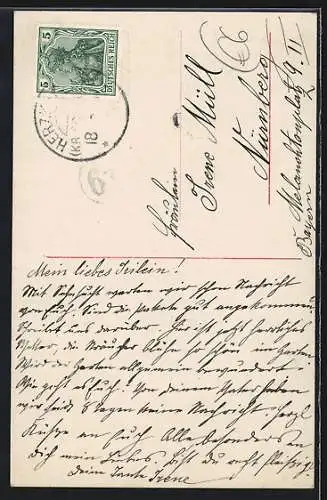 DEUTSCHES REICH
5 5
HERZ
(KR
18
Fräulein
Irene Müll
Nürnberg
Melanchtonplatz 9. II
Bayern
Mein liebes Irilein!
Mit Sehnsucht warten wir schon Nachricht
von Euch. Sind die Pakete gut angekommen?
Schreibet uns darüber. Hier ist jetzt herrliches
Wetter, die Sträucher blühn so schön im Garten
Wird der Garten allgemein bewundert?
Wie geht es Euch. Von deinem Vater haben
wir seid 8 Tagen keine Nachricht. Herzl.
Küsse an Euch Alle besonders an
dich mein Liebes. bist du recht fleißig?
deine Tante Irene